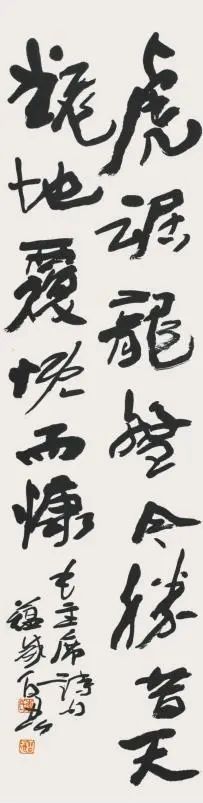 虎踞龍盤今勝昔天
翻地覆慨而慷
毛主席詩句